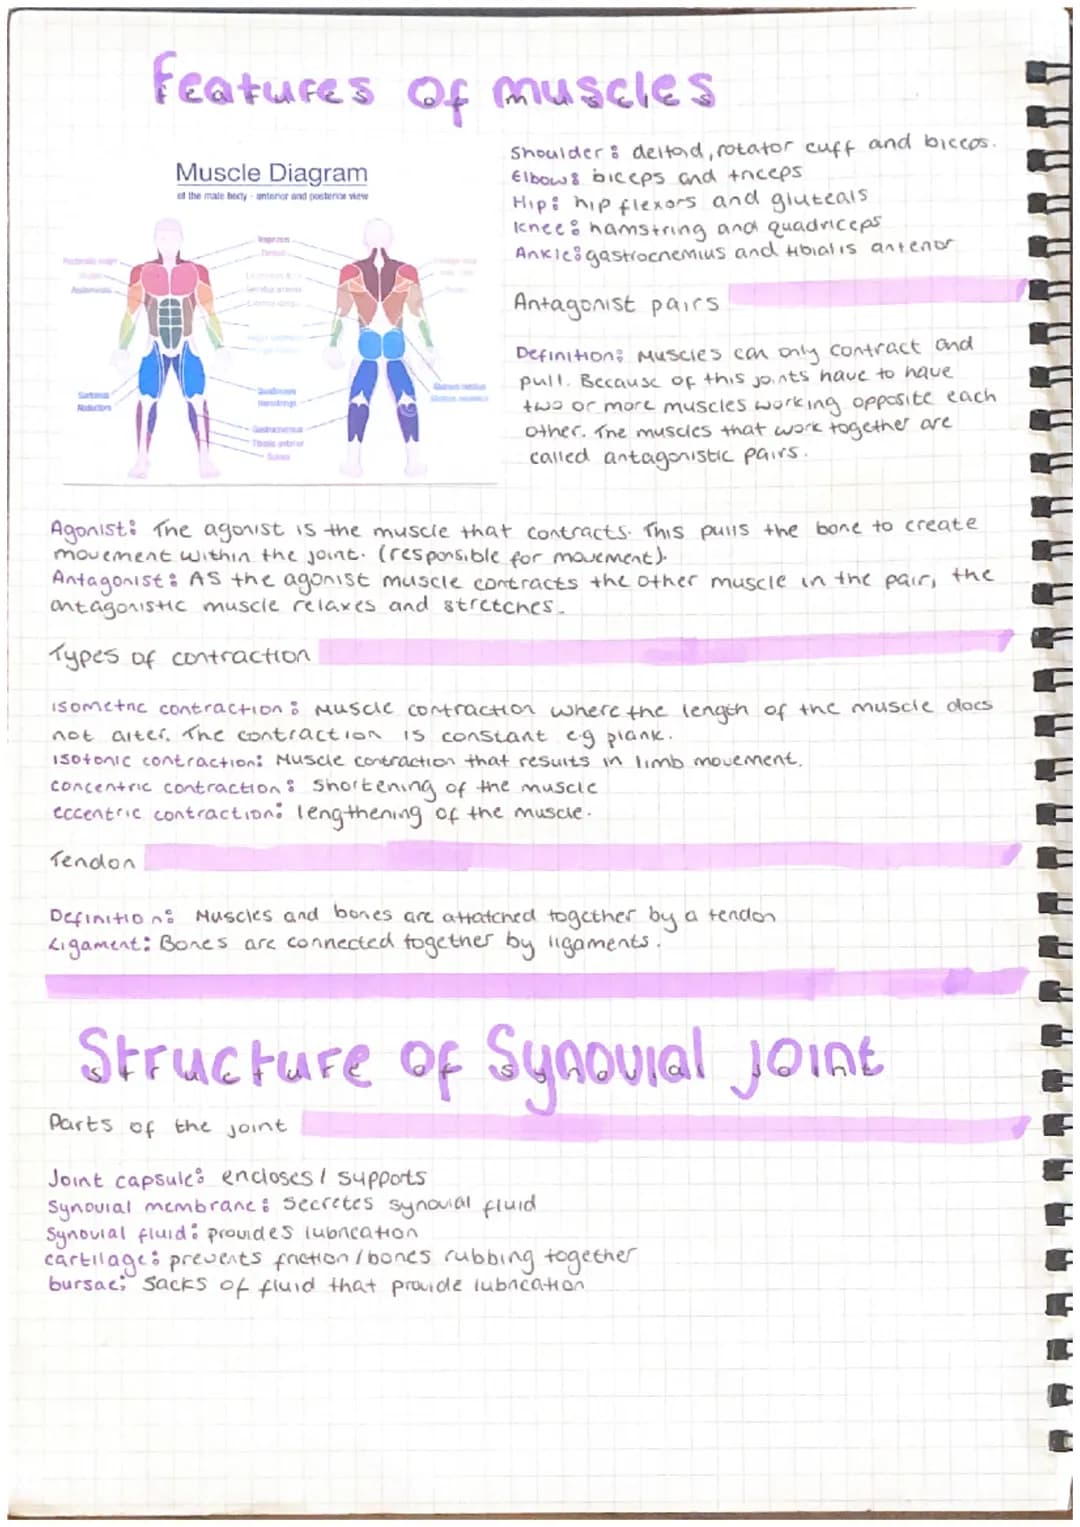 Features of muscles
Muscle Diagram
of the male body - anterior and posterior view
Sartorius
Quadriceps
Hamstrings
Gastrocnemius
Tibialis anterior
Soleus
Shoulder: deltoid, rotator cuff and biceps.
Elbow: biceps and triceps
Hip: hip flexors and gluteals
Knee: hamstring and quadriceps
Ankle: gastrocnemius and tibialis anterior
Antagonist pairs
Definition: Muscles can only contract and
pull. Because of this joints have to have
two or more muscles working opposite each
other. The muscles that work together are
called antagonistic pairs.
Agonist: The agonist is the muscle that contracts. This pulls the bone to create
movement within the joint. (responsible for movement).
Antagonist: As the agonist muscle contracts the other muscle in the pair, the
antagonistic muscle relaxes and stretches.
Types of contraction
isometric contraction: Muscle contraction where the length of the muscle does
not alter. The contraction is constant e.g plank.
isotonic contraction: Muscle contraction that results in limb movement.
concentric contraction: Shortening of the muscle
eccentric contraction: lengthening of the muscle.
Tendon
Definition: Muscles and bones are attatched together by a tendon
Ligament: Bones are connected together by ligaments.
Structure of Synovial joint
Parts of the joint
Joint capsule: encloses / supports
Synovial membrane: Secretes synovial fluid
Synovial fluid: provides lubrication
cartilage: prevents friction / bones rubbing together
bursae: Sacks of fluid that provide lubrication